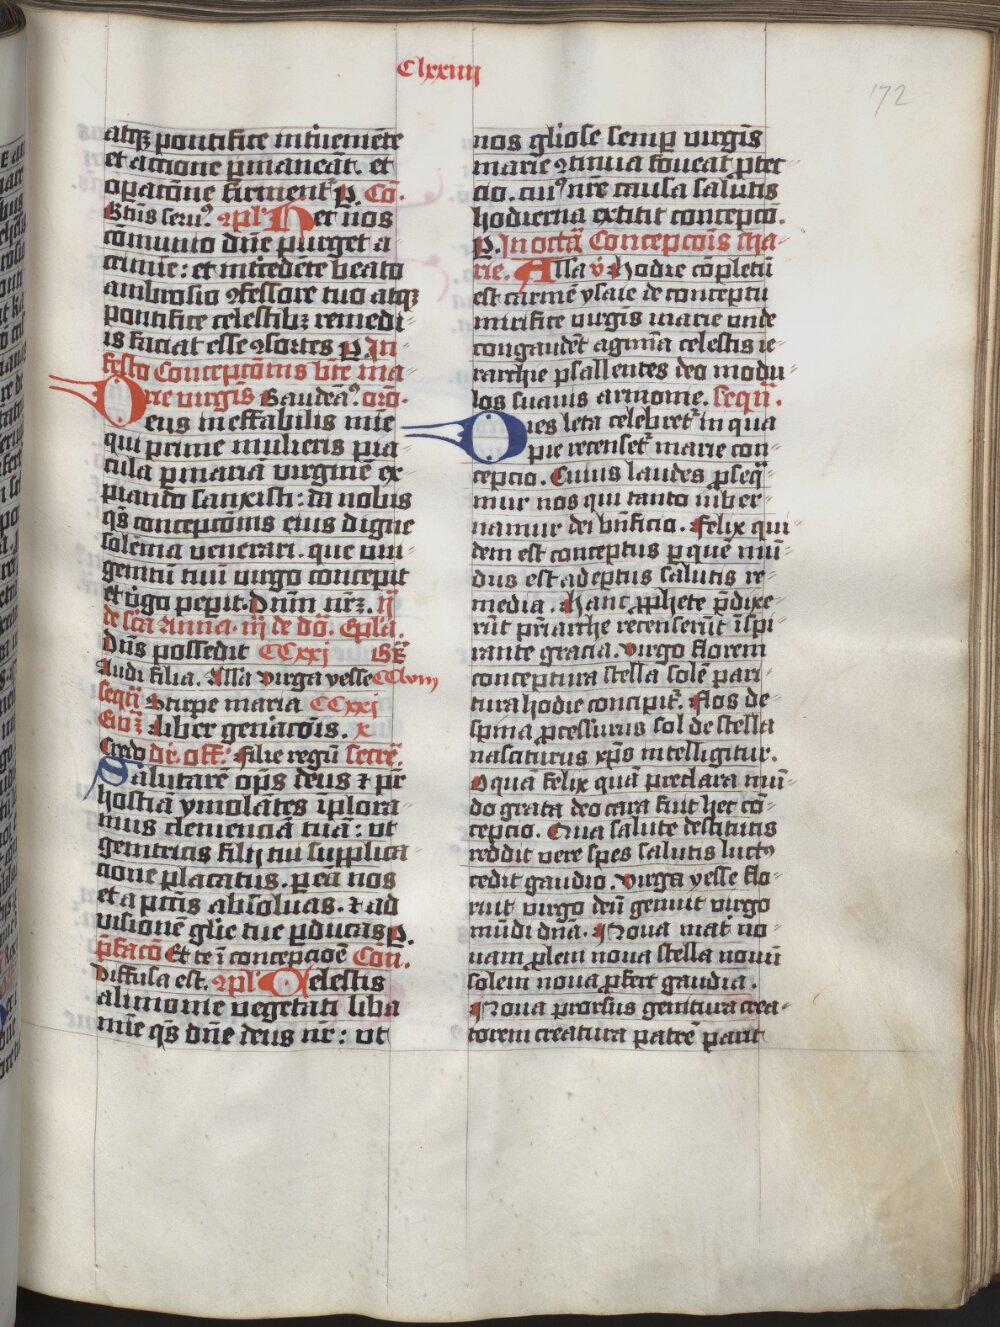 Clxxiiij
172
atqꝫ pontifice int̾ueniēte
et accione ꝑmaneāt. et
opatōne firment᷑ P. Cō.
Btīs seruꝰ. ꝯpl' Hec nos
cōmunio dn̄e purget a
crimīe: et int̾cedēte beato
ambrosio ꝯfessore tuo atqꝫ
pontifice celestibꝫ remedi
is faciat esse ꝯsortes P. In
festo Concepcōnis bt̄e ma
rie virginis Gaudeāꝰ. orō.
Deus ineffabilis mīe
qui prime mulieris pia
cula ꝑ mariā virginē ex
piando sanxisti: da nobis
qs̄ concepcōnis eius digne
solēnia venerari. que vni
genitū tuū virgo concepit
et v̾go peꝑit. Dn̄m nr̄ꝫ. IJ
de scā Anna. iij de dō. Epl'a.
Dn̄s possedit CCxxj Gr̄
Audi filia. Alla virga yesse CClviij
seqū Stirpe maria CCxxj
Ewꝫ Liber genīacōis. x
Credo dr̄. off. Filie regū Secrē.
Salutarē opn̄s deus ⁊ pr̄
hostiā ymolātes īplora
mus clemenciā tuā: vt
genitricis filij tui supplica
cione placatus. ꝑ eā nos
et a pctīs absoluas. ⁊ ad
visionē gl'ie tue ꝑducas P.
p̄facō Et te ī concepcioē Con.
Diffusa est. ꝯpl' Celestis
alimonie vegetati liba
mīe qs̄ dn̄e deus nr̄: vt
nos gl'iose semꝑ virgīs
marie ꝯtinua foueat ꝓtec
cio. cuiꝰ nr̄e causa salutis
hodierna extitit concepcō.
P. In octā Concepcōis Ma
rie. Alla v̾ Hodie cōpletū
est carmē ysaie de conceptu
mirifice virgīs marie vnde
congaudēt agmīa celestis ie
rarchie psallentes deo modu
los suauis armonie. seqū.
Dies leta celebret᷑ in qua
pie recenset᷑ marie con
cepcio. Cuius laudes ꝓseq̄
mur nos qui tanto iub er
namur dei bn̄ficio. Felix qui
dem est conceptus ꝑ quē mū
dus est adeptus salutis re
media. Hanc ꝓphete p̄dixe
rūt pr̄iarche recenserūt īspi
rante gracia. Virgo florem
conceptura stella solē pari
tura hodie concipit᷑. Flos de
spina ꝓcessurus sol de stella
nasciturus xp̄s intelligitur.
O quā felix quā preclara mū
do grata deo cara fuit hec cō
cepcio. Qua salute destitutis
reddit vere spes salutis luctꝰ
cedit gaudio. Virga yesse flo
ruit virgo deū genuit virgo
mūdi dn̄a. Noua mat̾ no
uam ꝓlem noua stella nouū
solem noua ꝓfert gaudia.
Noua prorsus genitura crea
torem creatura patrē parit